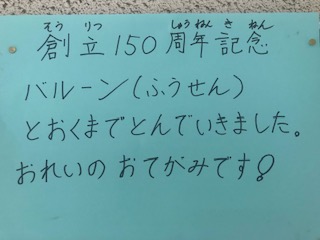 そうりつ しゅうねんきねん
創立150周年記念
バルーン(ふうせん)
とおくまでとんでいきました。
おれいの おてがみです!